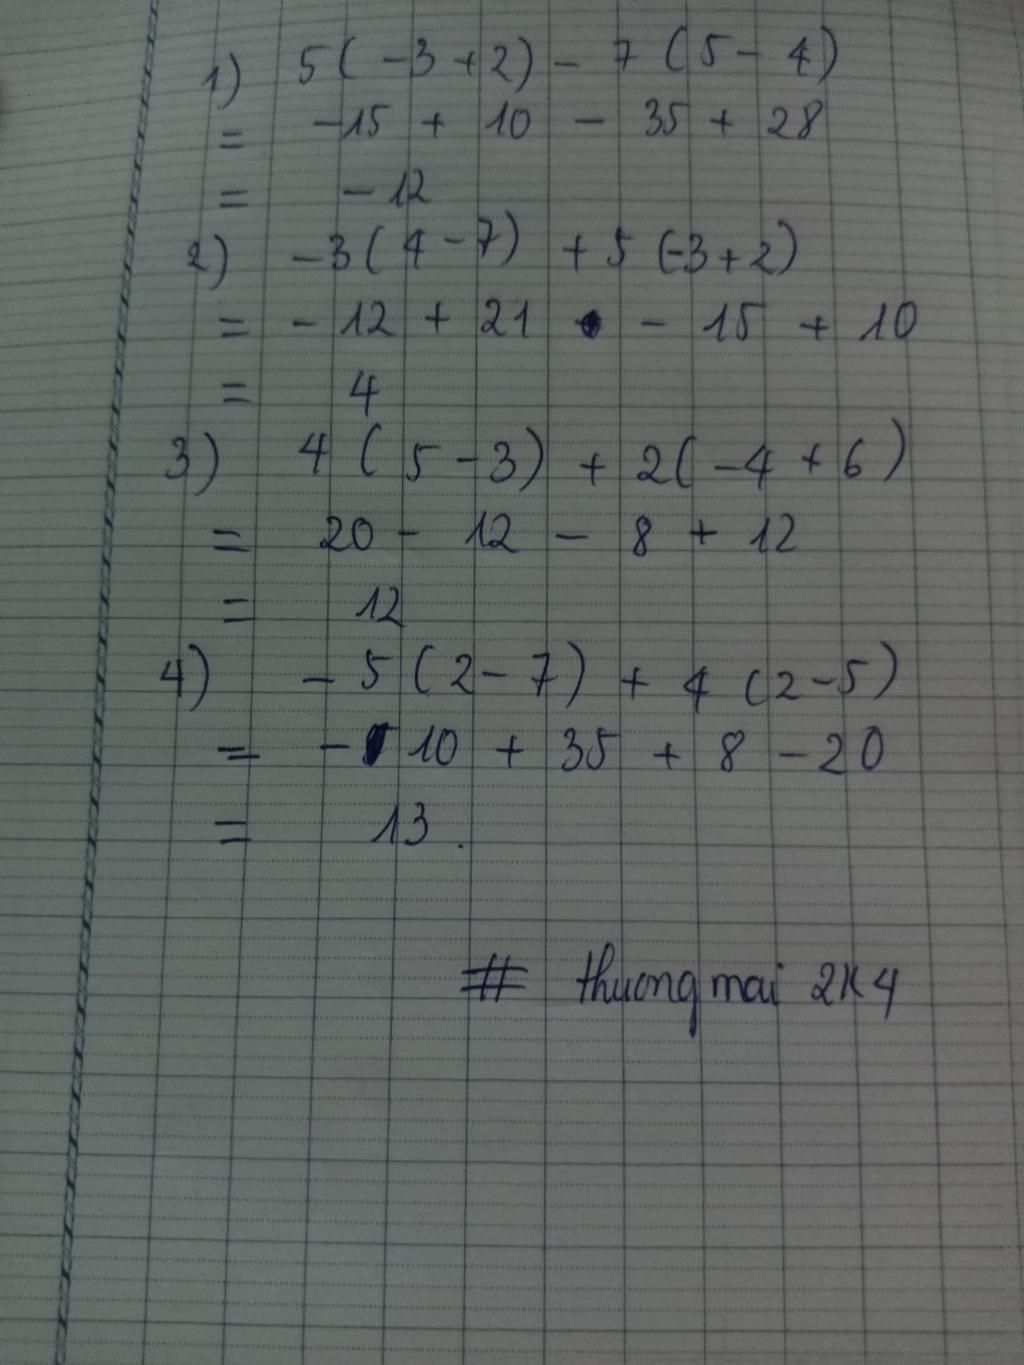 1) 5(-3+2) - 7(5-4)
= -15 + 10 - 35 + 28
= -12
2) -3(4-7) + 5(-3+2)
= -12 + 21 - 15 + 10
= 4
3) 4(5-3) + 2(-4+6)
= 20 - 12 - 8 + 12
= 12
4) -5(2-7) + 4(2-5)
= -10 + 35 + 8 - 20
= 13.
# thuongmai 2K4